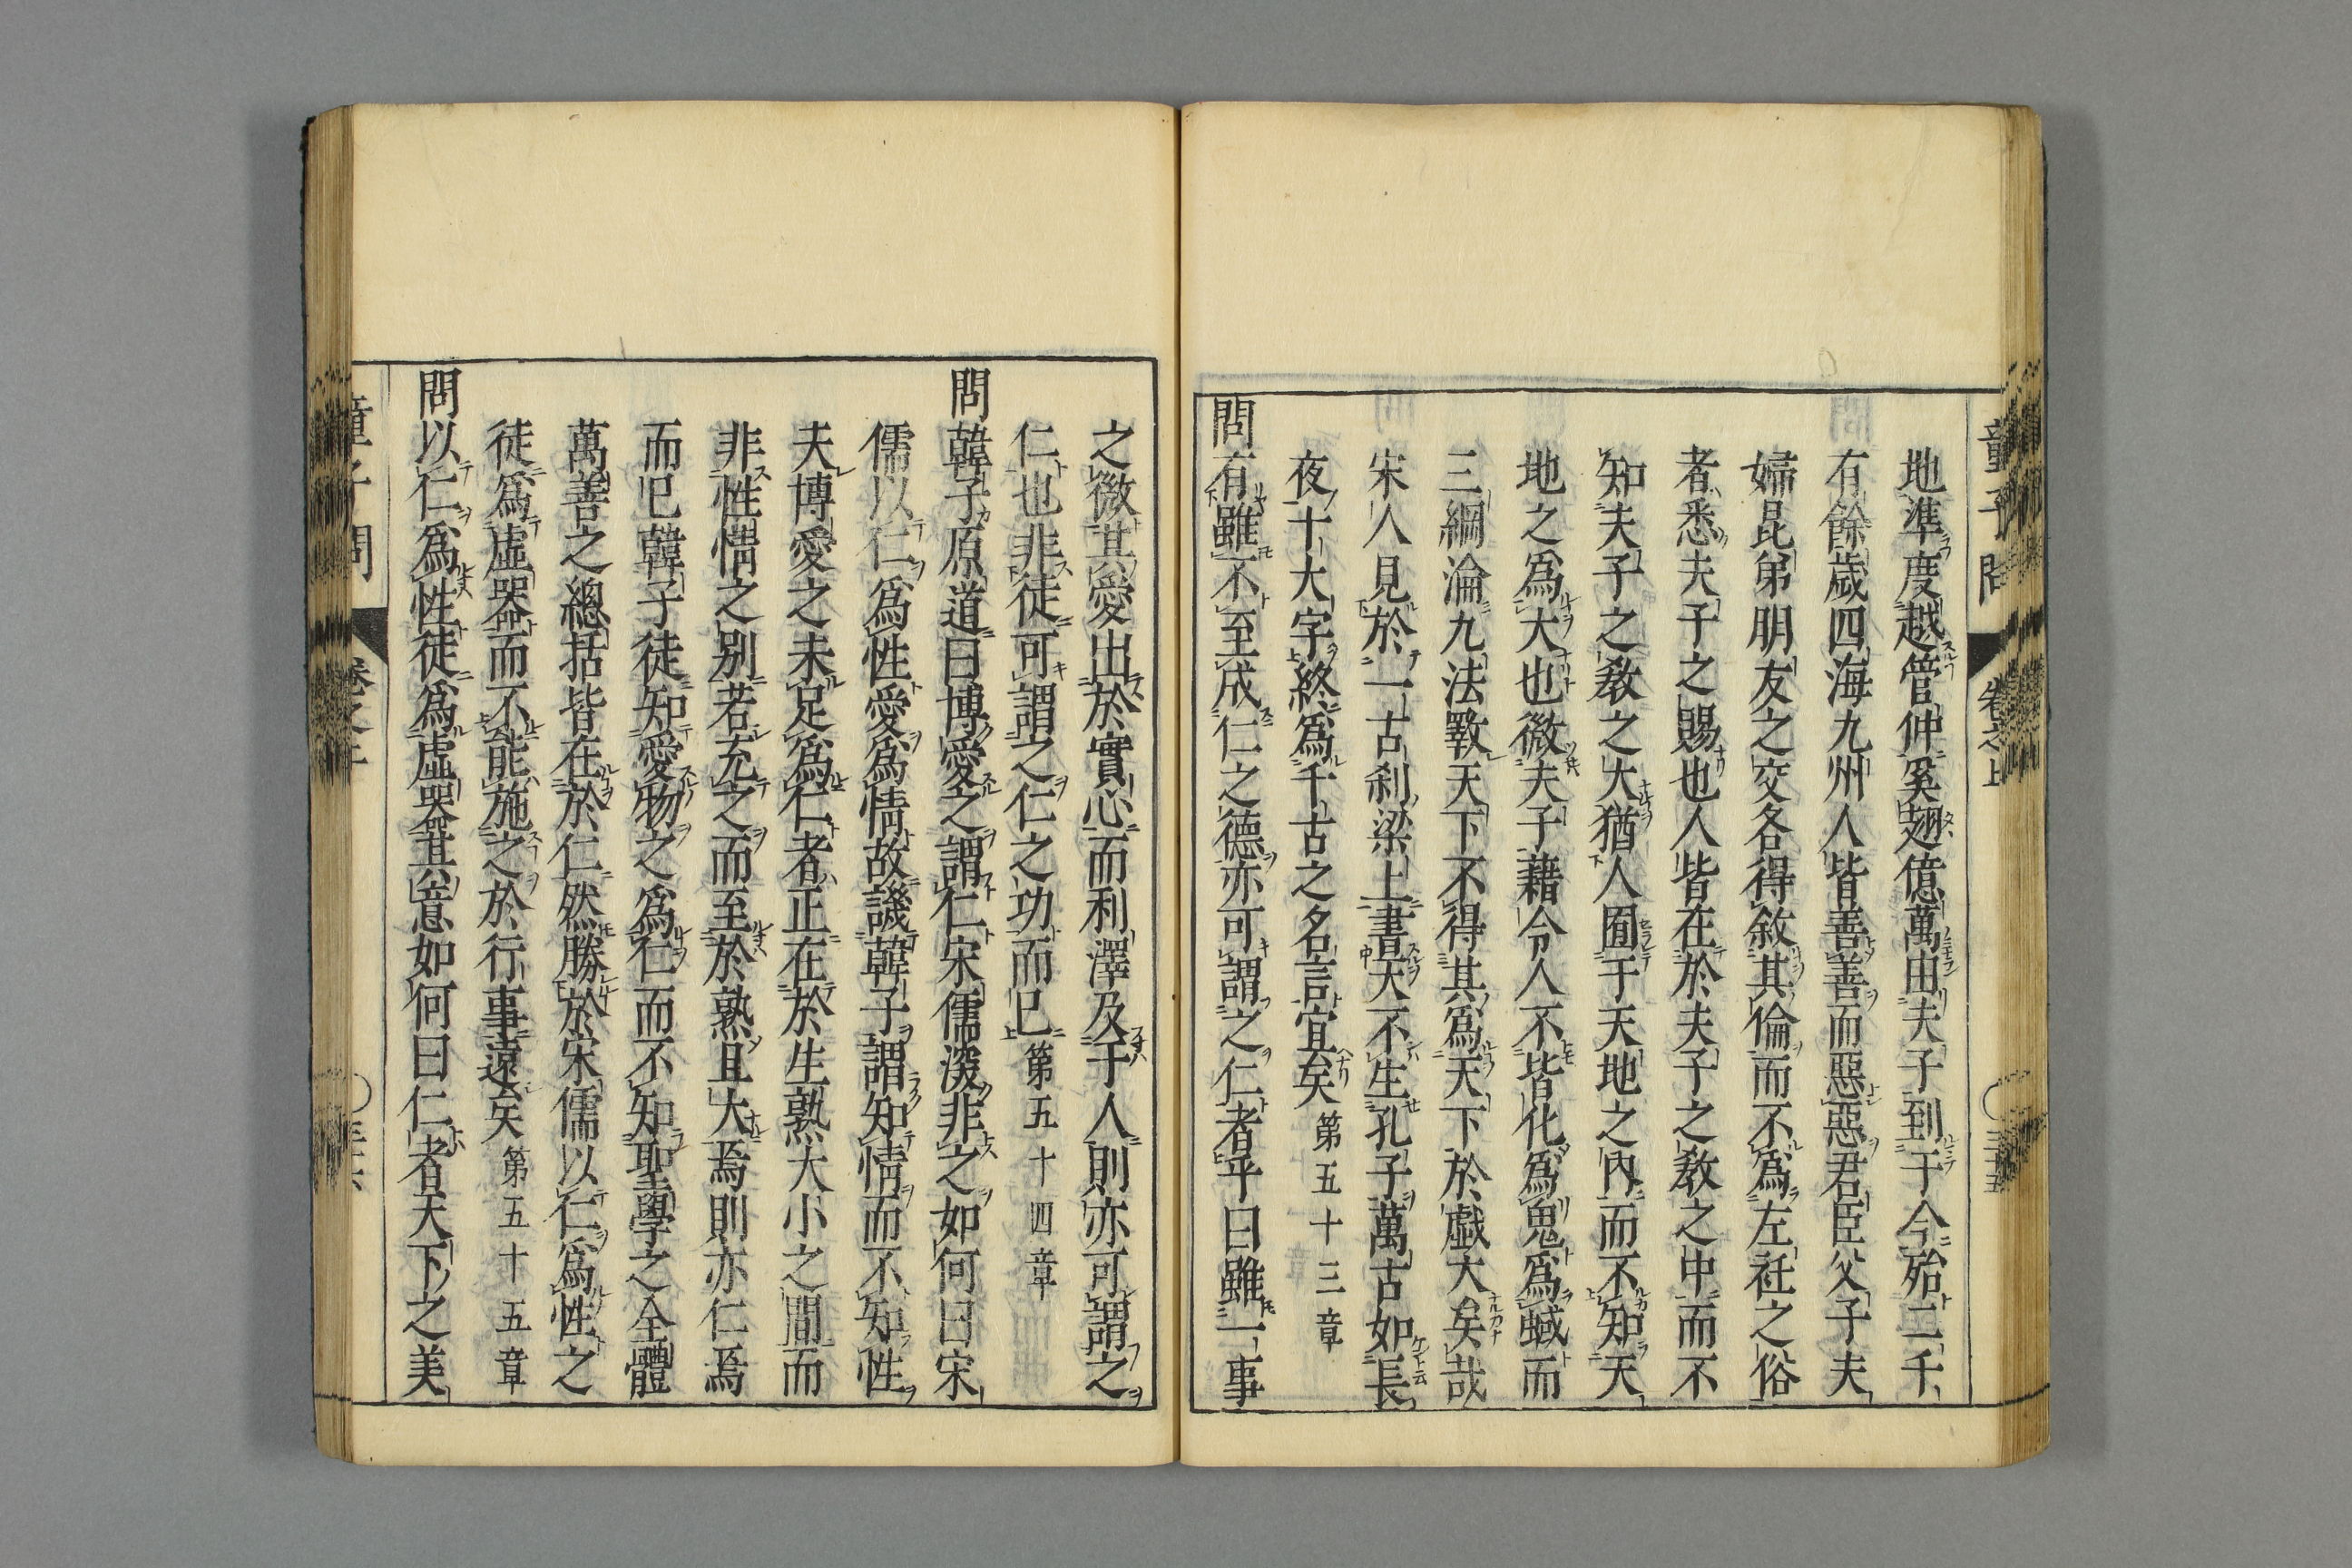 童子問 卷之上
地準度越管仲奚翅億萬由夫子到于今殆二千
有餘歲四海九州人皆善善而惡惡君臣父子夫
婦昆弟朋友之交各得敘其倫而不爲左衽之俗
者悉夫子之賜也人皆在於夫子之敎之中而不
知夫子之敎之大猶人囿于天地之內而不知天
地之爲大也微夫子藉令人不皆化爲鬼爲蜮而
三綱淪九法斁天下不得其爲天下於戲大矣哉
宋人見於一古刹梁上書天不生孔子萬古如長
夜十大字終爲千古之名言宜矣第五十三章
問有雖不至成仁之德亦可謂之仁者乎曰雖一事
之微其愛出於實心而利澤及于人則亦可謂之
仁也非徒可謂之仁之功而已第五十四章
問韓子原道曰博愛之謂仁宋儒深非之如何曰宋
儒以仁爲性愛爲情故譏韓子謂知情而不知性
夫博愛之未足爲仁者正在於生熟大小之間而
非性情之別若充之而至於熟且大焉則亦仁焉
而已韓子徒知愛物之爲仁而不知聖學之全體
萬善之總括皆在於仁然勝於宋儒以仁爲性之
徒爲虛器而不能施之於行事遠矣第五十五章
問以仁爲性徒爲虛器其意如何曰仁者天下之美
童子問